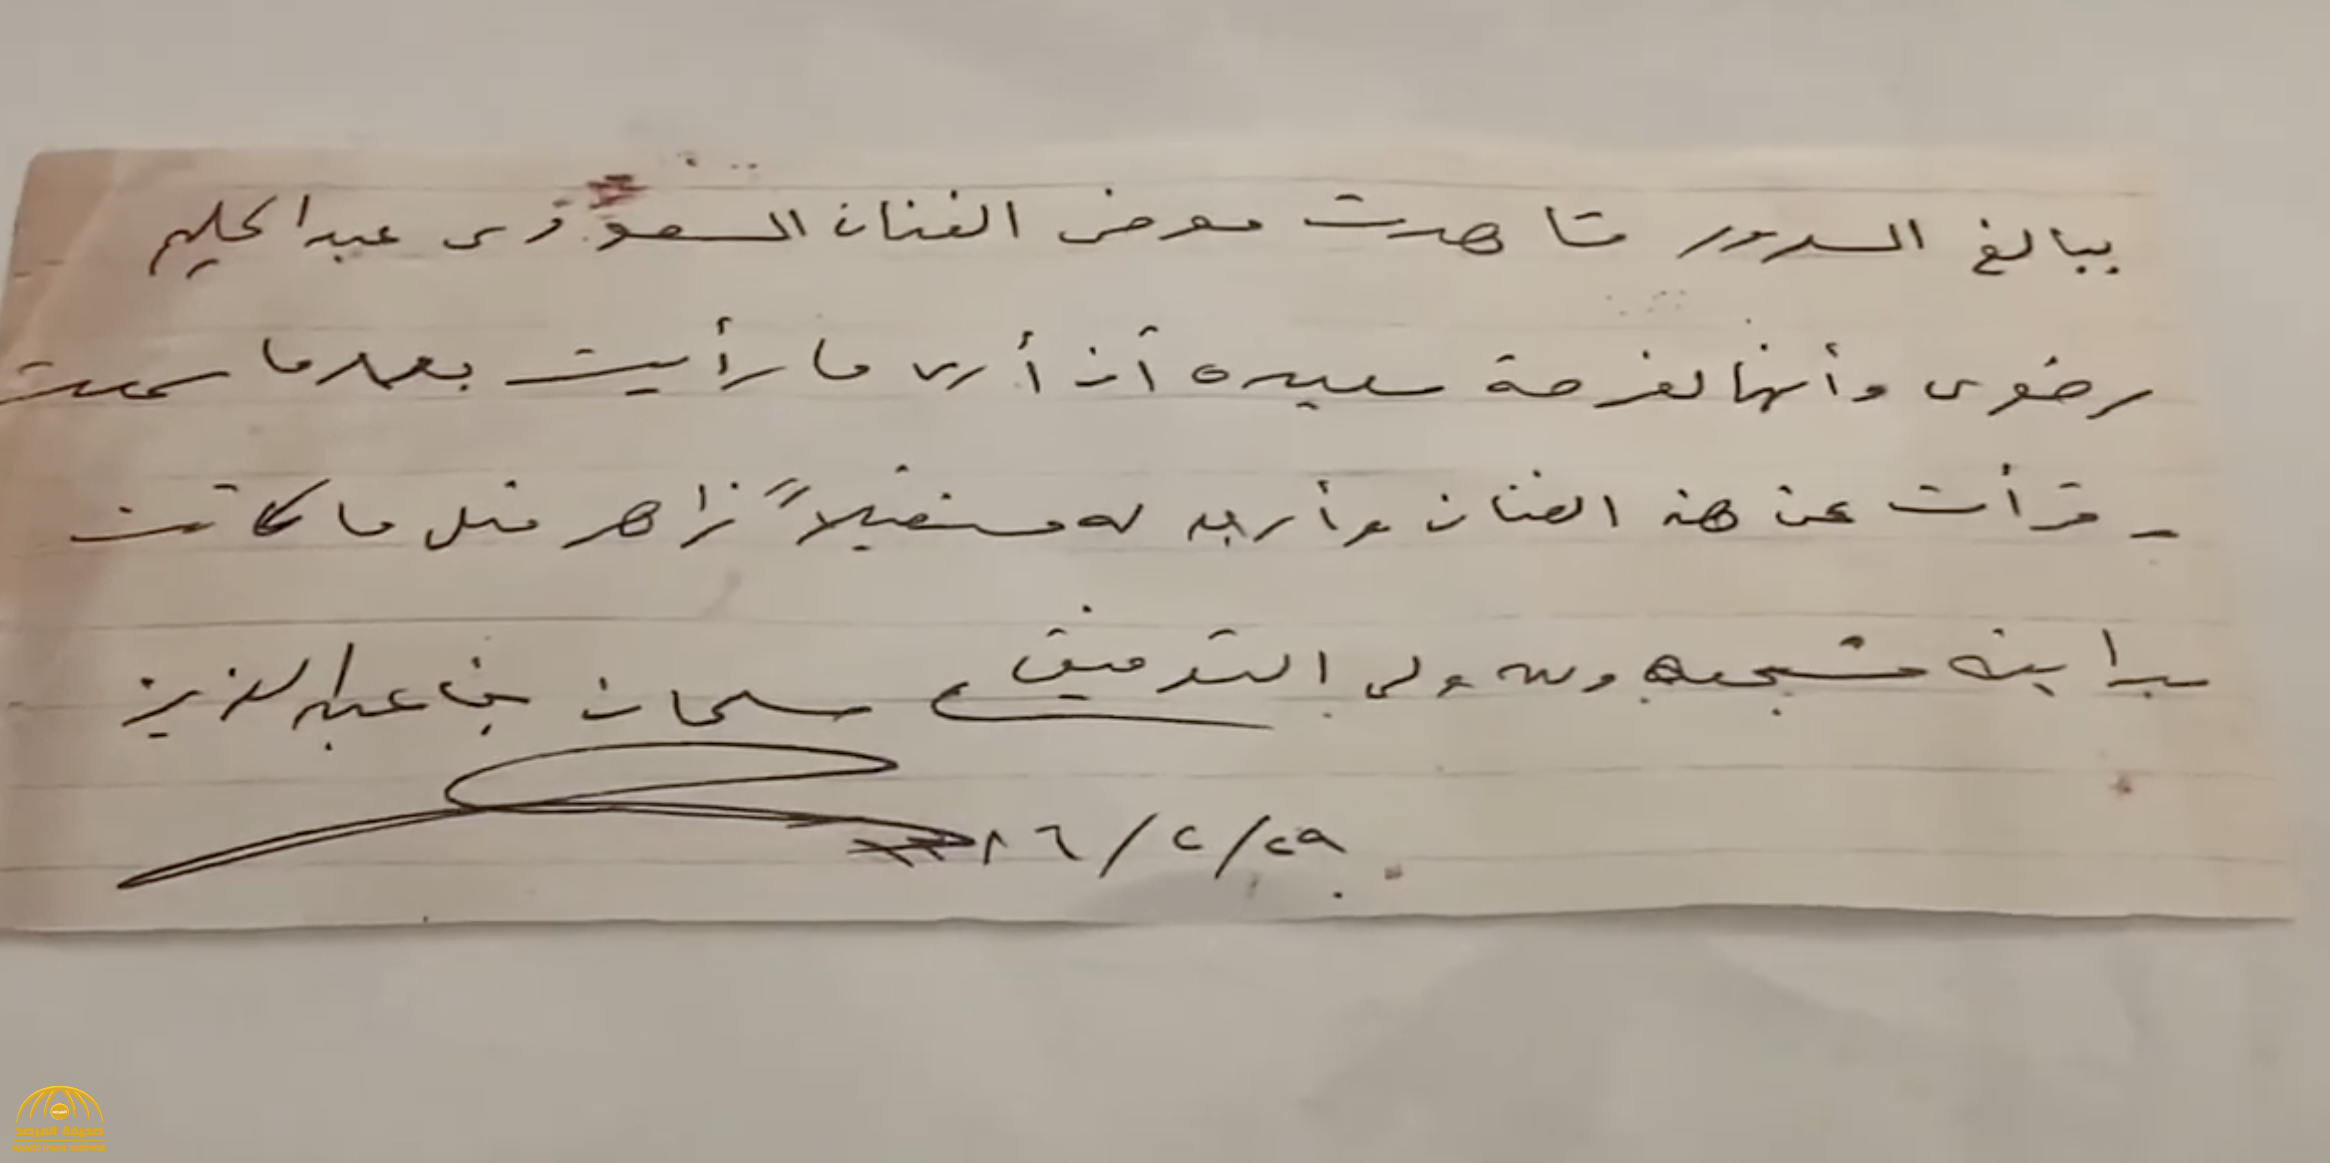 ببالغ السرور شاهدت معرض الفنان السعودى عبدالحليم
رضوى وأنها لفرصة سعيده أن أرى ما رأيت بعدما سمعت
وقرأت عن هذ الفنان وأريد له مستقبلاً زاهر مثل ما كانت
بدايته مشجعه والله ولى التوفيق سلمان بن عبدالعزيز
٢٩/٢/٨٦
صحيفة المرصد